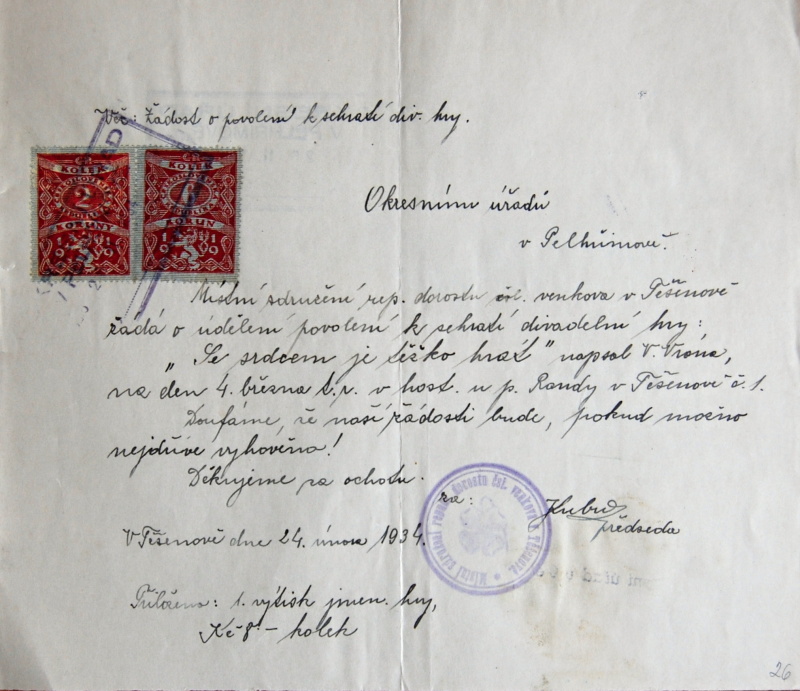 Věc: Žádost o povolení k sehrátí div. hry.
Okresnímu úřadu
v Pelhřimově.
KOLEK KOLEK
2 6
KORUNY KORUN
1919 1919
Místní sdružení rep. dorostu čsl. venkova v Těšenově
žádá o udělení povolení k sehrátí divadelní hry:
„Se srdcem je těžko hrát" napsal V. Vrána,
na den 4. března t.r. v host. u p. Randy v Těšenově č. 1.
Doufáme, že naší žádosti bude, pokud možno
nejdříve vyhověno!
Děkujeme za ochotu.
za:
předseda
V Těšenově dne 24. února 1934.
Místní sdružení repub. dorostu čsl. venkova v Těšenově.
Přiloženo: 1. výtisk jmen. hry,
Kč 8.– kolek
26